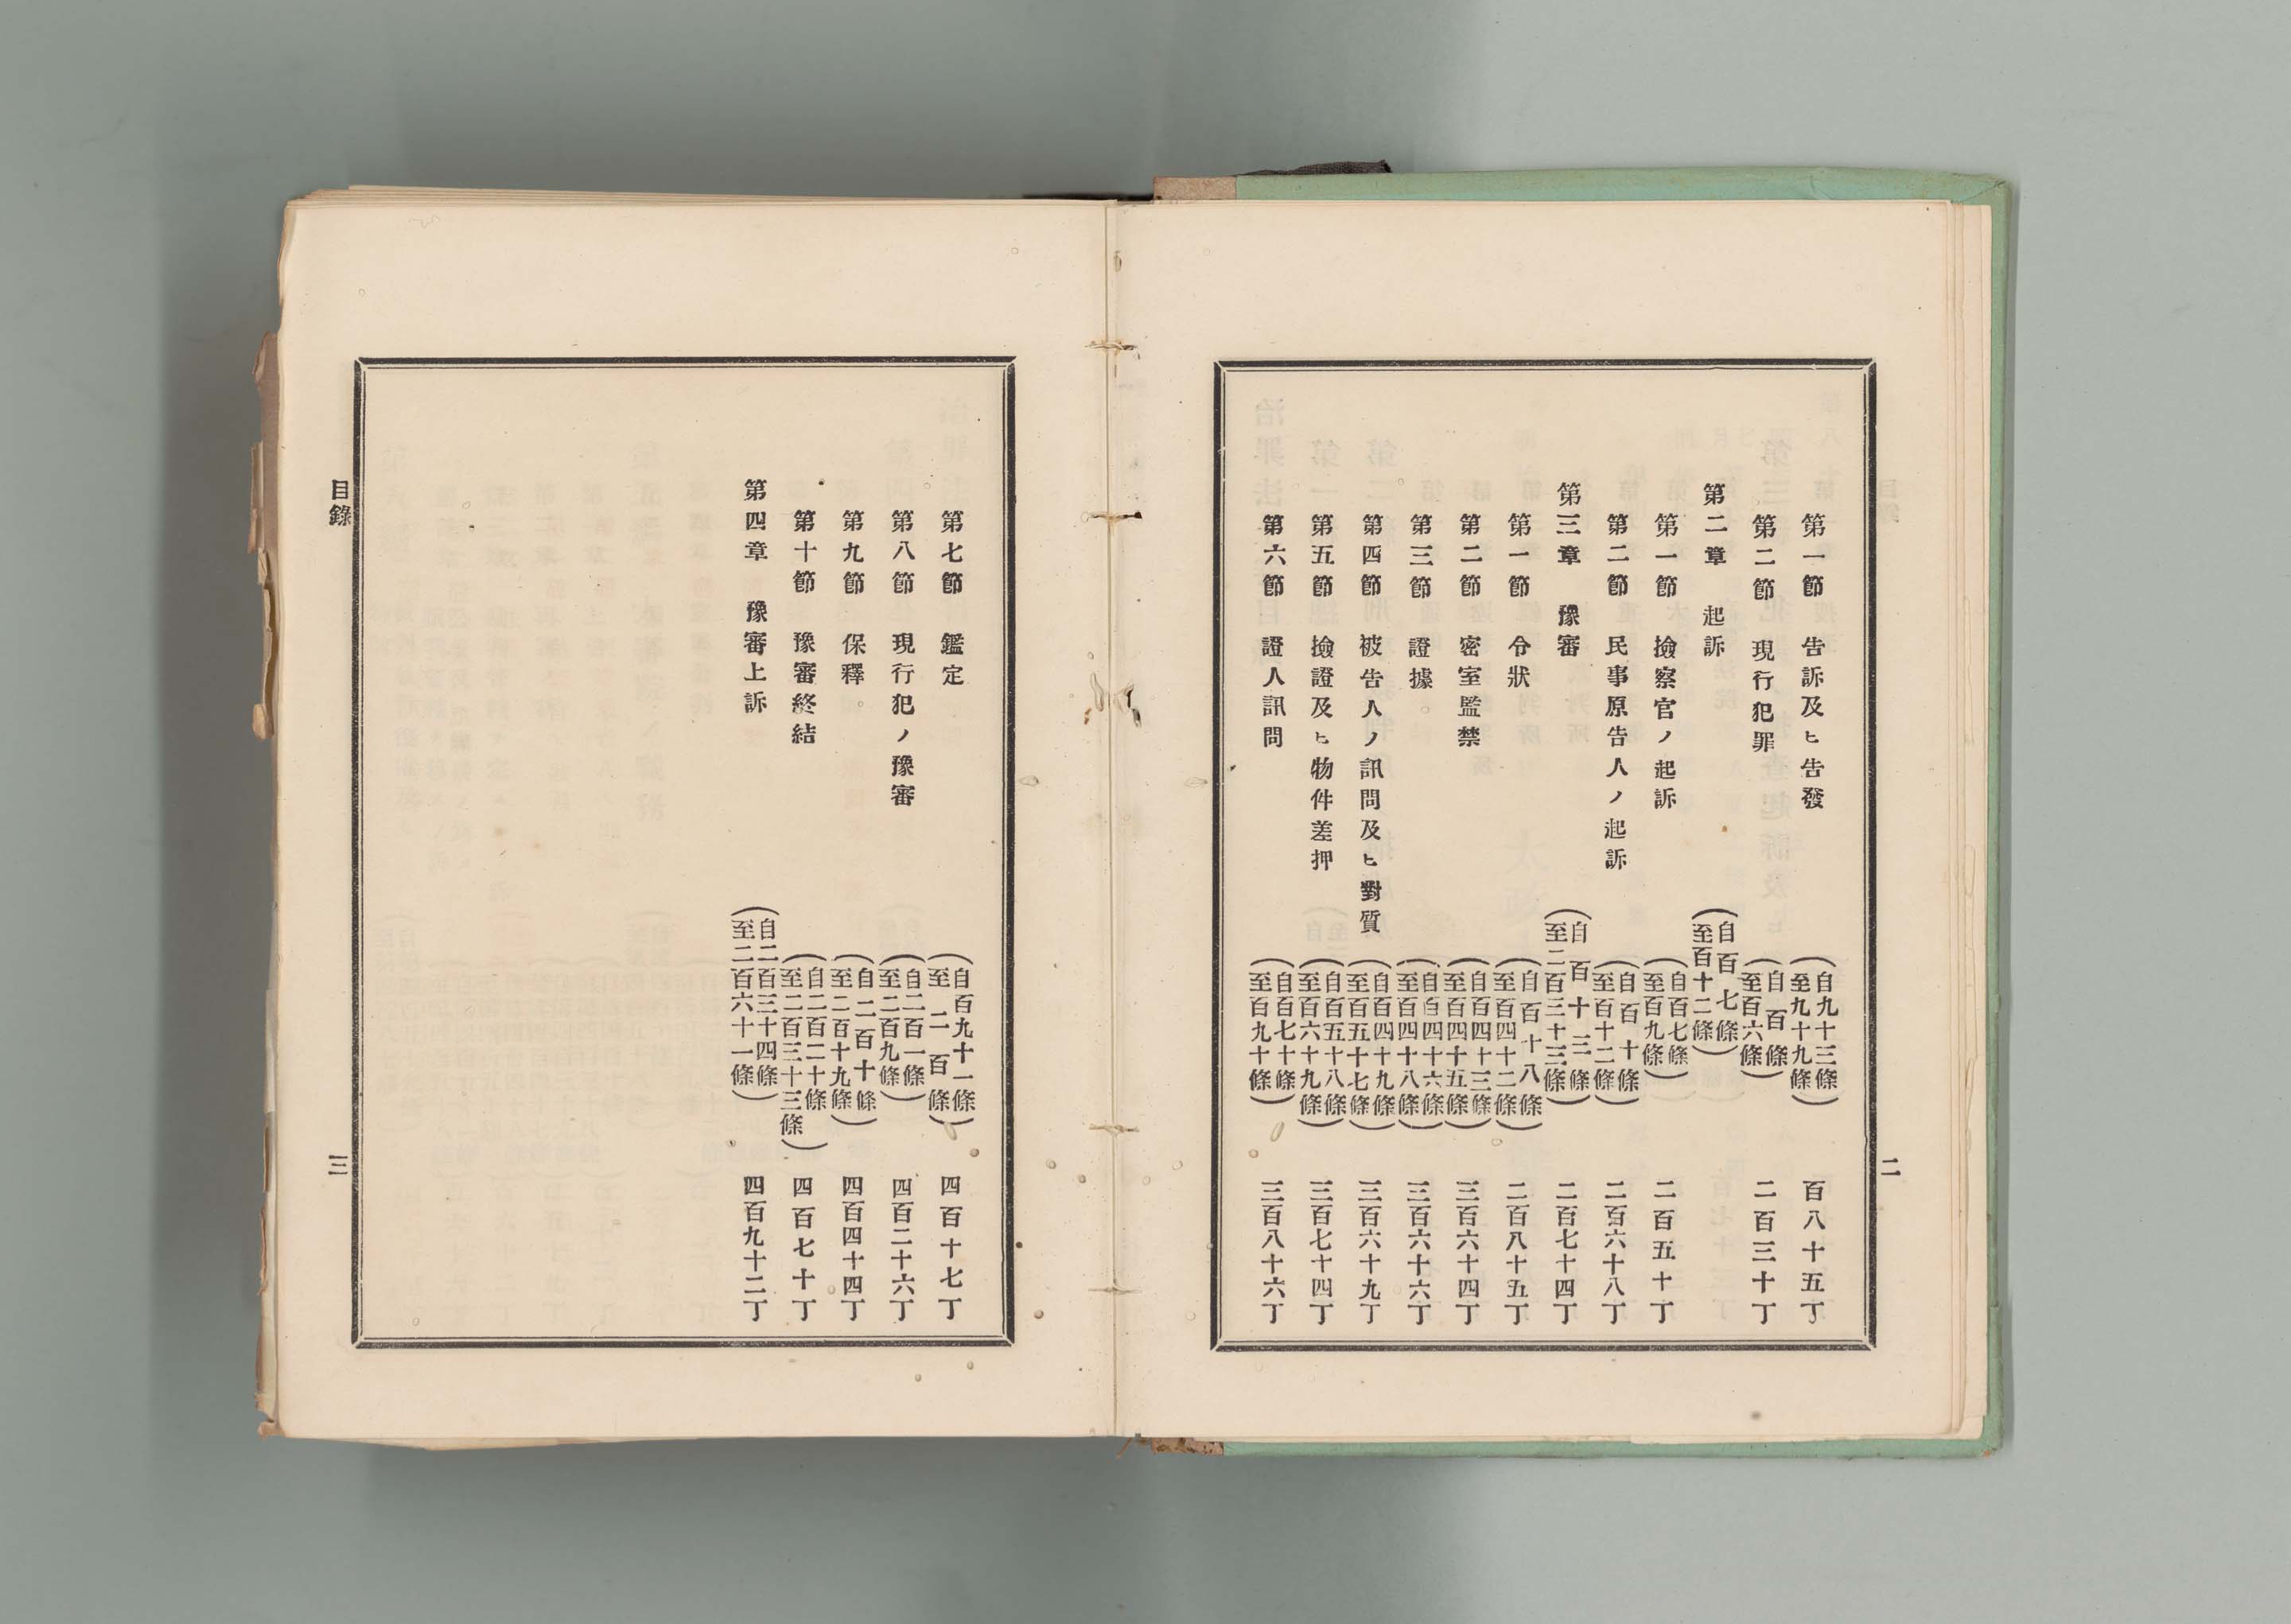 二
第一節 告訴及ヒ告發 (自九十三條 至九十九條) 百八十五丁
第二節 現行犯罪 (自百條 至百六條) 二百三十丁
第二章 起訴 (自百七條 至百十二條)
第一節 撿察官ノ起訴 (自百七條 至百九條) 二百五十丁
第二節 民事原告人ノ起訴 (自百十條 至百十二條) 二百六十八丁
第三章 豫審 (自百十三條 至二百三十三條) 二百七十四丁
第一節 令狀 (自百十八條 至百四十二條) 二百八十五丁
第二節 密室監禁 (自百四十三條 至百四十五條) 三百六十四丁
第三節 證據。 (自百四十六條 至百四十八條) 三百六十六丁
第四節 被告人ノ訊問及ヒ對質 (自百四十九條 至百五十七條) 三百六十九丁
第五節 撿證及ヒ物件差押 (自百五十八條 至百六十九條) 三百七十四丁
第六節 證人訊問 (自百七十條 至百九十條) 三百八十六丁
第七節 鑑定 (自百九十一條 至二百條) 四百十七丁
第八節 現行犯ノ豫審 (自二百一條 至二百九條) 四百二十六丁
第九節 保釋。 (自二百十條 至二百十九條) 四百四十四丁
第十節 豫審終結 (自二百二十條 至二百三十三條) 四百七十丁
第四章 豫審上訴 (自二百三十四條 至二百六十一條) 四百九十二丁
目錄
三